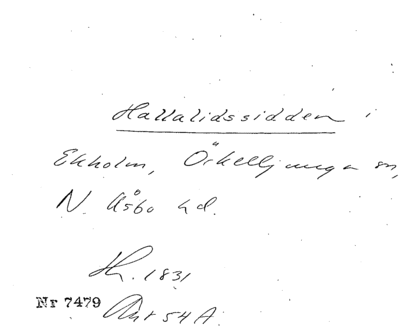 Hallalidssidden i
Ekholm, Örkelljunga sn,
N. Åsbo hd.
H. 1831
Nr 7479
Ant 54 A.